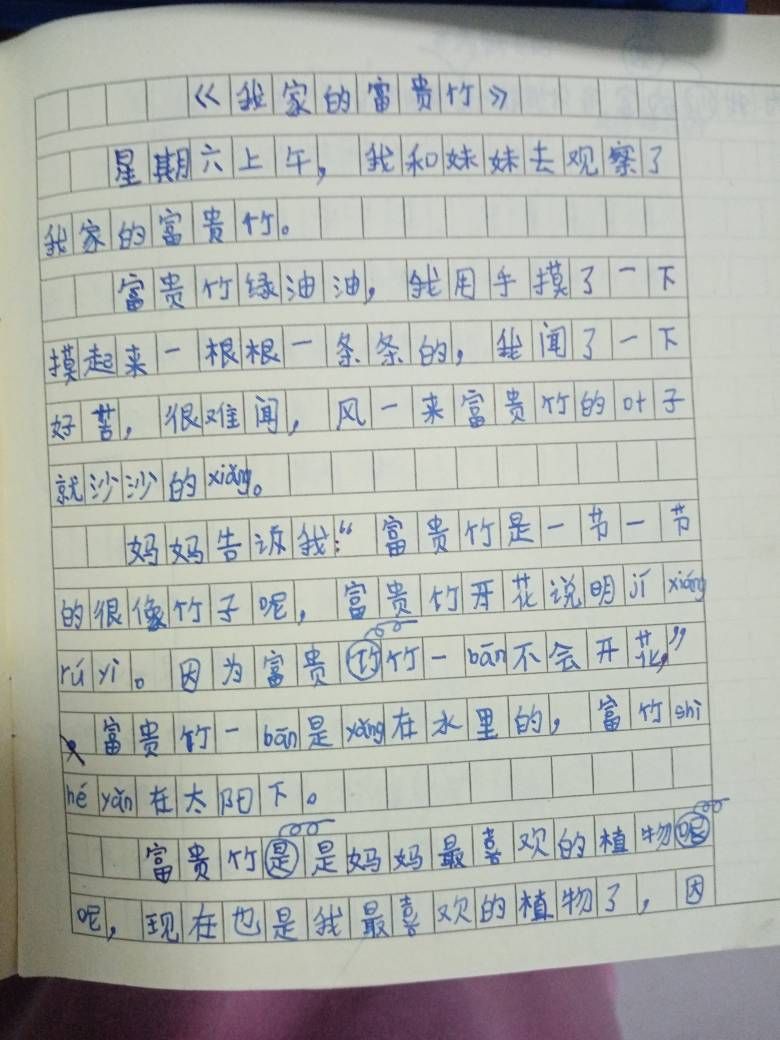 《我家的富贵竹》
星期六上午，我和妹妹去观察了
我家的富贵竹。
富贵竹绿油油，我用手摸了一下
摸起来一根根一条条的，我闻了一下
好苦，很难闻，风一来富贵竹的叶子
就沙沙的xiǎng。
妈妈告诉我：“富贵竹是一节一节
的很像竹子呢，富贵竹开花说明jí xiáng
rú yì。因为富贵竹一bān不会开花，”
富贵竹一bān是yǎng在水里的，富竹shì
hé yǎn在太阳下。
富贵竹是妈妈最喜欢的植物
呢，现在也是我最喜欢的植物了，因